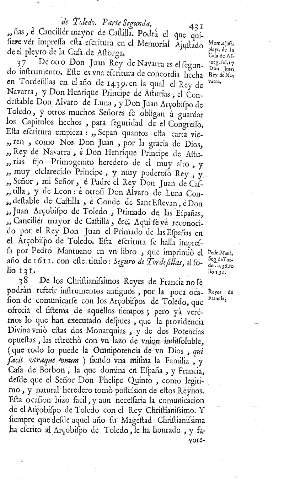 de Toledo. Parte Segunda, 431
„ ñas, è Canciller mayor de Castilla. Podrà el que qui-
siere vèr impressa esta escritura en el Memorial Ajustado
de el pleyto de la Casa de Astorga.
37 De otro Don Juan Rey de Navarra es el segun-
do instrumento. Este es vna escritura de concordia hecha
en Tordesillas en el año de 1439. en la qual el Rey de
Navarra, y Don Henrique Principe de Asturias, el Con-
destable Don Alvaro de Luna, y Don Juan Arçobispo de
Toledo, y otros muchos Señores se obligan à guardar
los Capitulos hechos, para seguridad de el Congresso.
Esta escritura empieza: „ Sepan quantos esta carta vie-
„ ren, como Nos Don Juan, por la gracia de Dios,
„ Rey de Navarra, è Don Henrique Principe de Astu-
„ rias fijo Primogenito heredero de el muy alto, y
„ muy esclarecido Principe, y muy poderoso Rey, y
„ Señor, mi Señor, è Padre el Rey Don Juan de Cas-
„ tilla, y de Leon: è otrosi Don Alvaro de Luna Con-
„ destable de Castilla, è Conde de Sant Estevan, è Don
„ Juan Arçobispo de Toledo, Primado de las Españas,
„ Canciller mayor de Castilla, &c. Aqui se vè reconoci-
do por el Rey Don Juan el Primado de las Españas en
el Arçobispo de Toledo. Esta escritura se halla impres-
sa por Pedro Mantuano en vn libro, que imprimiò el
año de 1611. con este titulo: Seguro de Tordesillas, al fo-
lio 131.
38 De los Christianissimos Reyes de Francia no se
podràn referir instrumentos antiguos, por la poca oca-
sion de comunicarse con los Arçobispos de Toledo, que
ofrecia el sistema de aquellos tiempos; pero yà verè-
mos lo que han executado despues, que la providencia
Divina vniò estas dos Monarquias, y de dos Potencias
opuestas, las estrechò con vn lazo de vnion indissoluble,
(que todo lo puede la Omnipotencia de vn Dios, qui
facit vtraque vnum) siendo vna misma la Familia, y
Casa de Borbon, la que domina en España, y Francia,
desde que el Señor Don Phelipe Quinto, como legiti-
mo, y natural heredero tomò possession de estos Reynos.
Esta ocasion hizo facil, y aun necessaria la comunicacion
de el Arçobispo de Toledo con el Rey Christianissimo. Y
siempre que desde aquel año su Magestad Christianissima
ha escrito al Arçobispo de Toledo, le ha honrado, y fa-
vore-
Reyes de
Francia.